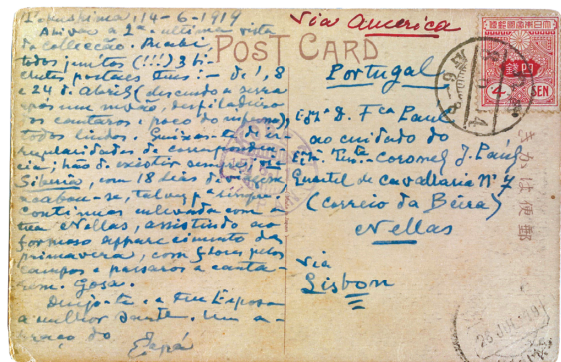 Tokushima, 14-6-1919
Ahi vae a 2ª e ultima vista
da collecção. Recebi,
todos juntos (!!!) 3 bi-
lhetes postaes teus: - de 1, 8
e 24 de Abril (descendo a serra
após um nevão, desfiladeiro
os cantaros, poço do inferno),
todos lindos. Queixas-te de ir-
regularidades de correspondên-
cia; hão de existir sempre; a
Siberia, com 18 dias de viagem,
acabou-se, talvez p'ra sempre.
Continuas enlevada com a
tua Nellas, assistindo ao
formoso apparecimento da
primavera, com flores pelos
campos e passaros a canta-
rem. Gosa.
Desejo-te e a teu Esposo
a melhor sorte. Um a-
braço do
Via America
POST CARD
Portugal
Exmª D. Fca Paul
ao cuidado do
Exmº Tnte-Coronel J. Paul
Quartel de Cavallaria Nº 7
(Correio da Beira)
Nellas
Via
Lisbon
大日本帝國郵便
四錢
4 SEN
きかは便郵